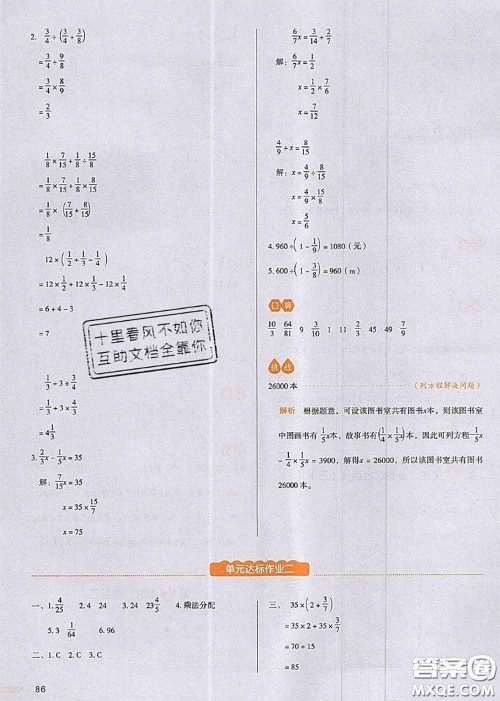 2. 3/4÷(3/4+3/8)
=3/4÷9/8
=3/4×8/9
=2/3
1/8×7/15+1/8÷15/8
=1/8×7/15+1/8×8/15
=1/8×(7/15+8/15)
=1/8
12×(1/2+1/3-1/4)
=12×1/2+12×1/3-12×1/4
=6+4-3
=7
1/3÷3+3/4
=1/3×1/3
3. 2/3x-1/5x=35
解：7/15x=35
x=35×15/7
x=75
6/7x=3/14+2/7
解：6/7x=1/2
x=1/2×7/6
x=7/12
4/9÷x=8/15
解：x=4/9÷8/15
x=4/9×15/8
x=5/6
4. 960÷(1-1/9)=1080（元）
5. 600÷(1-3/8)=960（m）
口算
10/3 64/81 9 3/10 1 11 2/3 45 49 7/9
挑战
26000本 （列方程解决问题）
解析 根据题意，可设该图书室共有图书x本，则该图书室
中图画书有1/5x本，故事书有(1/4×1/5x)本，因此可列方程1/5x
-1/4×1/5x=3900，解得x=26000，所以该图书室共有图书
26000本。
十里春风不如你
互助文档全靠你
单元达标作业二
一、1. 4/25 2. 4 24 3. 24 23 4/5 4. 乘法分配
5. 3 1/64 6. 96
二、1. C 2. C 3. C
三、35×(2+3/7)
=35×2+35×3/7
=70+15
=85
86
答案圈
MXQE.COM